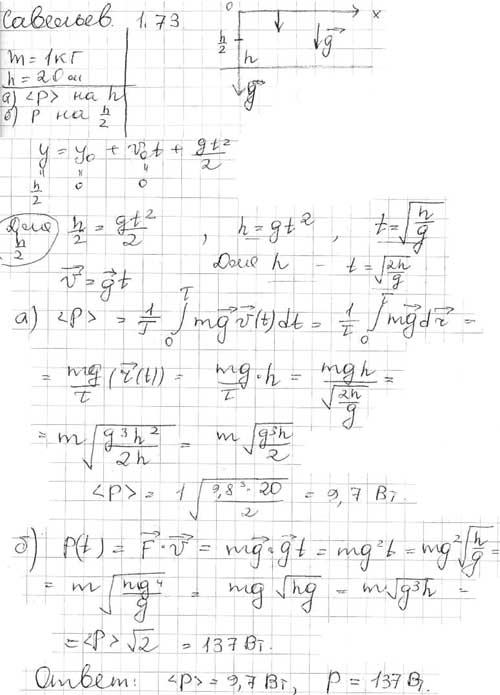 Савельев. 1.73
0 x
m = 1 кг
h = 20 м
а) <P> на h
б) P на h/2
h/2
h
g⃗
g⃗
y = y₀ + v₀t + gt²/2
h/2 0 0
Для h/2
h/2 = gt²/2 , h = gt² , t = √(h/g)
Для h – t = √(2h/g)
v⃗ = g⃗t
а) <P> = 1/τ ∫₀^τ mg⃗ v⃗(t)dt = 1/τ ∫₀^τ mg⃗ dr⃗ =
= mg/τ (r⃗(t)) = mg/τ · h = mgh/√(2h/g) =
= m √(g³h²/2h) = m √(g³h/2)
<P> = 1 √(9,8³ · 20/2) = 9,7 Вт.
б) P(t) = F⃗ · v⃗ = mg⃗ · g⃗t = mg²t = mg² √(h/g) =
= m √(hg⁴/g) = mg √(hg) = m √(g³h) =
= <P> √2 = 137 Вт.
Ответ: <P> = 9,7 Вт, P = 137 Вт.